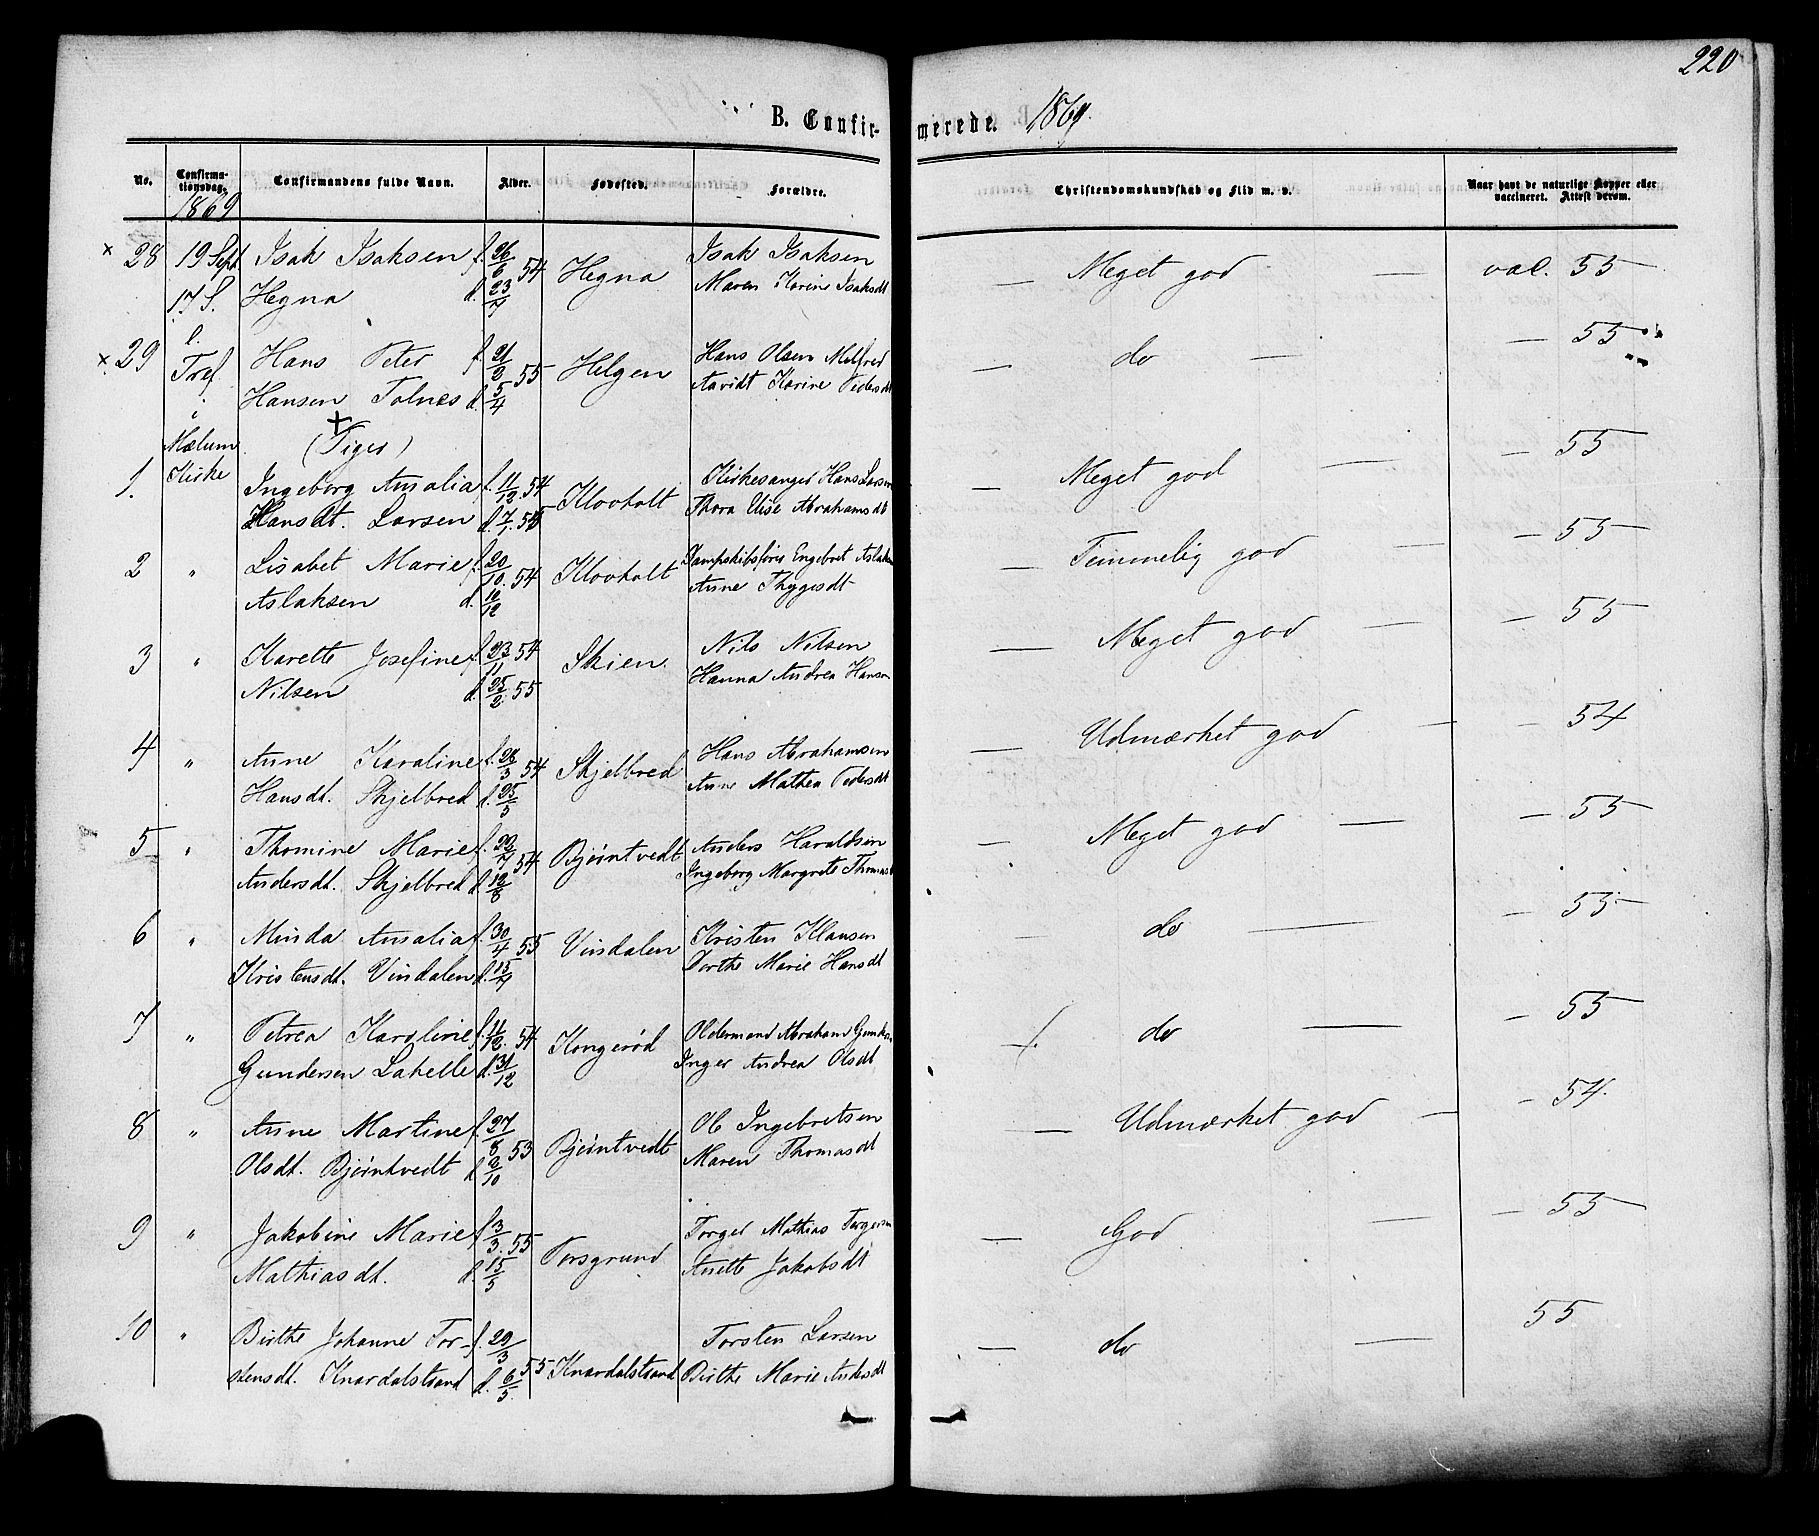 220
B. Confirmerede. 1869.
No. Confirmationsdag. Confirmandens fulde Navn. Alder. Fødested. Forældre. Christendomskundskab og Flid m. v. Naar havt de naturlige Kopper eller vaccineret. Attest derom.
1869
28 19 Sept Isak Isaksen f. 26/6 54 Hegna Isak Isaksen — Meget god — vac. 55
17 S. Hegna d. 23/7 Maren Karine Isaksdt
e.
29 Tref. Hans Peter f. 21/2 55 Helgen Hans Olsen — do — — 55
i Hansen Tolnes d. 5/4 Karine Pedersdt
Mælum (Piger)
Kirke
1. Ingeborg Amalia f. 11/12 54 Klovholt Kirkesanger Hans Larsen — Meget god — — 55
Hansdt. Larsen d. 7/1 55 Thora Elise Abrahamsdt
2 " Lisabet Marie f. 20/10 54 Klovholt Dampskibsfører Engebret Aslaksen — Temmelig god — — 55
Aslaksen d. 12/12 Anne Thygesdt
3 " Karette Josefine f. 23/11 54 Skien Nils Nilsen — Meget god — — 55
Nilsen d. 25/2 55 Hanna Andrea Hansen
4 " Anne Karoline f. 28/3 54 Skjelbred Hans Abrahamsen — Udmærket god — — 54
Hansdt. Skjelbred d. 25/5 Anne Mathea Pedersdt
5 " Thomine Marie f. 22/7 54 Bjørntvedt Anders Haraldsen — Meget god — — 55
Andersdt. Skjelbred d. 12/8 Ingeborg Margrete Thomasdt
6 " Minda Amalia f. 30/4 55 Vindalen Kristen Klausen — do — — 55
Kristensdt. Vindalen d. 15/7 Dorthe Marie Hansdt
7 " Petrea Karoline f. 11/12 54 Kongerød Oldermand Abraham — do — — 55
Gundersen Lahelle d. 31/12 Inger Andrea Olsdt
8 " Anne Martine f. 27/8 53 Bjørntvedt Ole Ingebretsen — Udmærket god — — 54.
Olsdt. Bjørntvedt d. 2/10 Maren Thomasdt
9 " Jakobine Marie f. 3/3 55 Porsgrund Torger Mathias Torgersen — God — — 55
Mathiasdt. d. 15/5 Anette Jakobsdt
10 " Birthe Johanne Tor- f. 29/3 Torsten Larsen — do — 55
stensdt. Knardalstrand d. 6/5 55 Knardalstrand Birthe Marie Andersdt